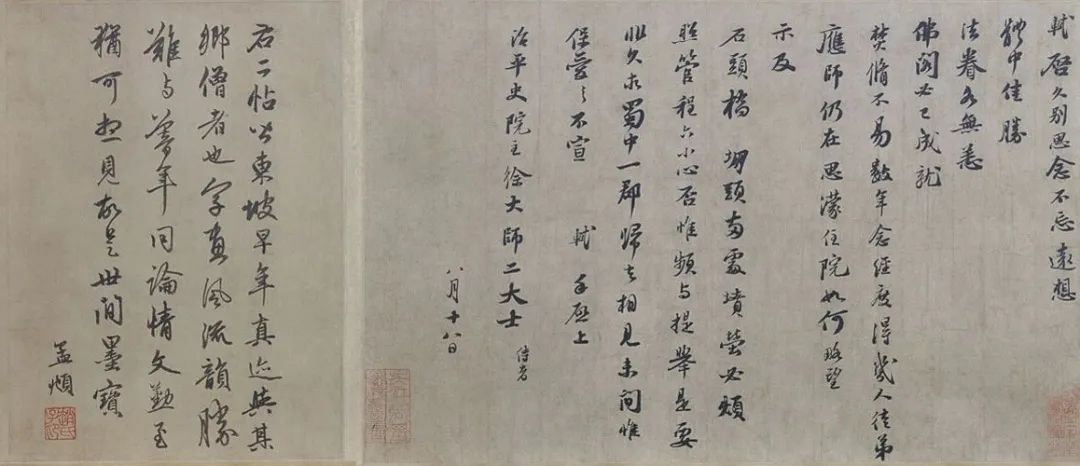 軾啓久别思念不忘遠想
體中佳勝
法眷各無恙
佛閣必已成就
焚脩不易數年念經度得幾人徒弟
應師仍在思濛住院如何略望
示及
石頭橋堋頭两處墳塋必煩
照管程六小心否惟頻与提舉是要
非久求蜀中一郡歸去相見未間惟
保愛之不宣 軾手啓上
治平史院主徐大師二大士 侍者
八月十八日
右二帖皆東坡早年真迹與其
鄉僧者也字畫風流韻勝
難与暮年同論情文勤至
猶可想見故是世間墨寶
孟頫
趙氏子昂